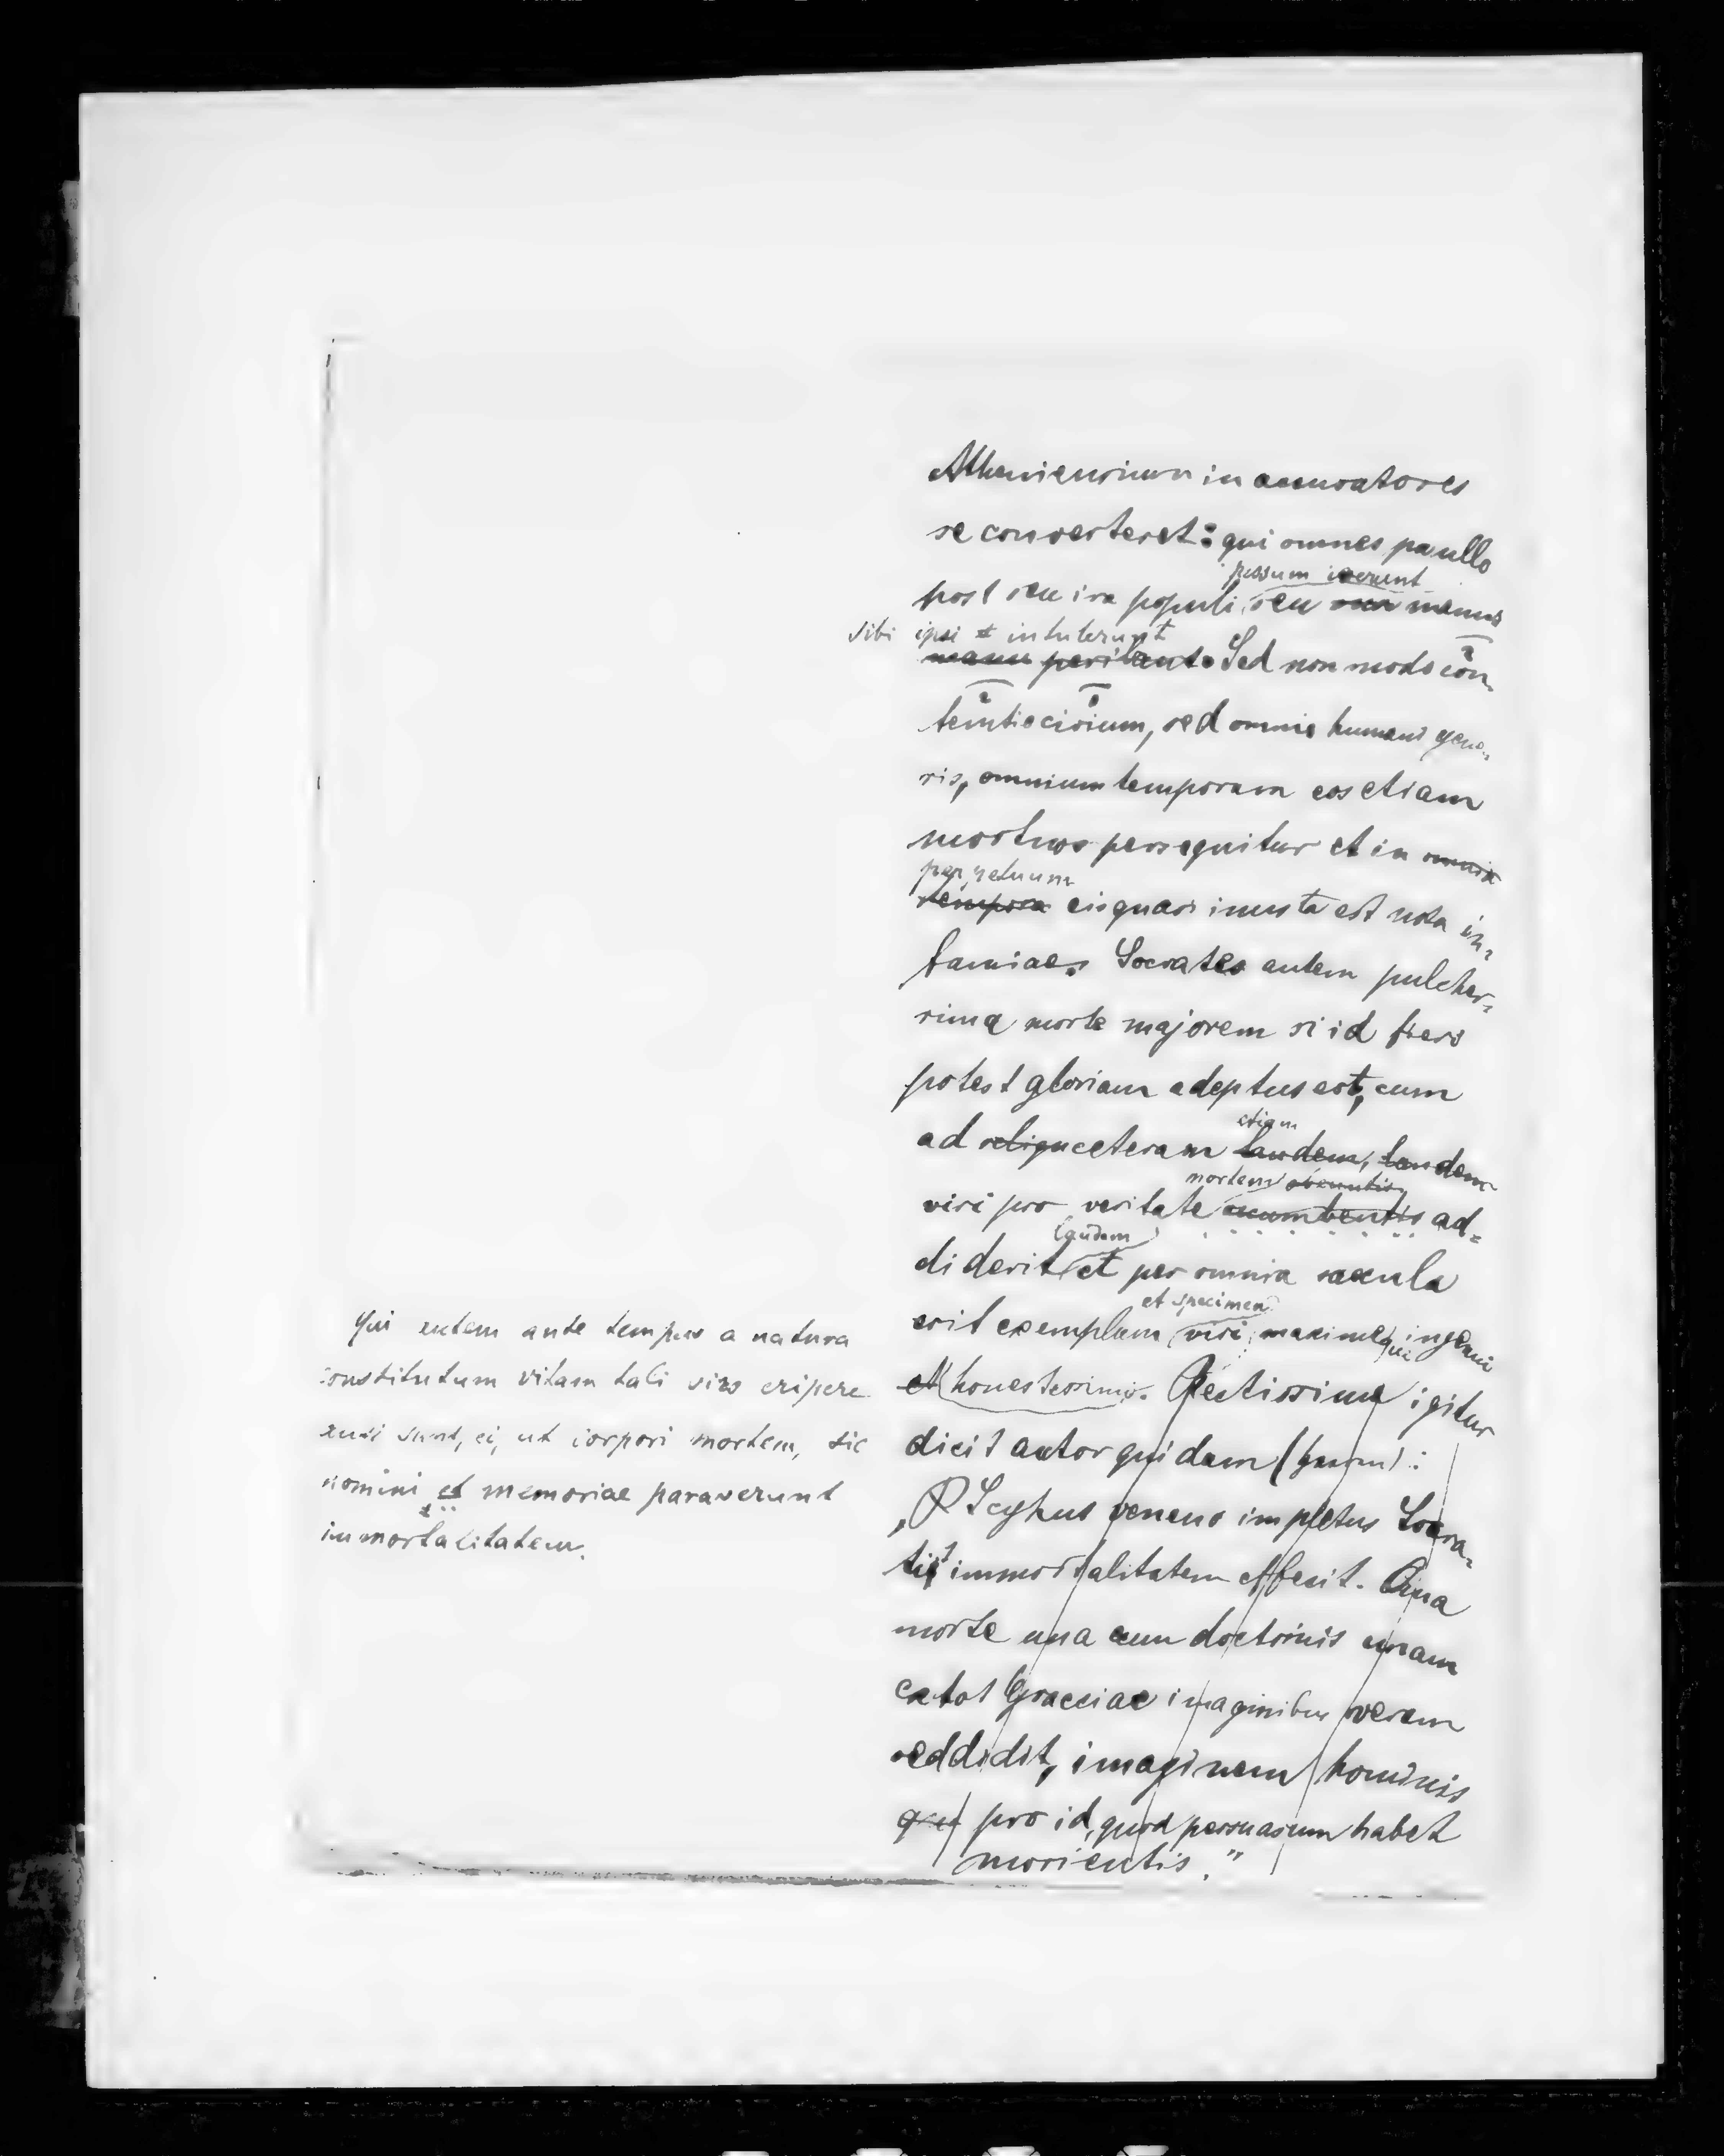 Atheniensium in accusatores
se converteret: qui omnes paullo
pessum ierunt
post seu ira populi, seu sua manus
sibi ipsi intulerunt
manu perierunt. Sed non modo con-
temtio civium, sed omnis humani gene-
ris, omnium temporum eos etiam
mortuos persequitur et in omnia
perpetuum
tempora eis quasi inusta est nota in-
famiae. Socrates autem pulcher-
rima morte majorem si id fieri
potest gloriam adeptus est, cum
etiam
ad reliqu ceteram laudem, laudem
mortem obeuntis
viri pro veritate occumbentis ad-
laudem
diderit et per omnia saecula
et specimen
erit exemplum viri maximeque ingenui
et honestissimi. Rectissime igitur
dicit autor quidam
„Scyphus veneno impletus Socra-
tis immortalitatem effecit. Qua
morte una cum doctrinis unam
ex tot Graeciae imaginibus veram
reddidit, imaginem hominis
qui pro id, quod persuasum habet
morientis."
Qui autem ante tempus a natura
constitutum vitam tali viro eripere
ausi sunt, ei, ut corpori mortem, sic
nomini et memoriae paraverunt
immortalitatem.